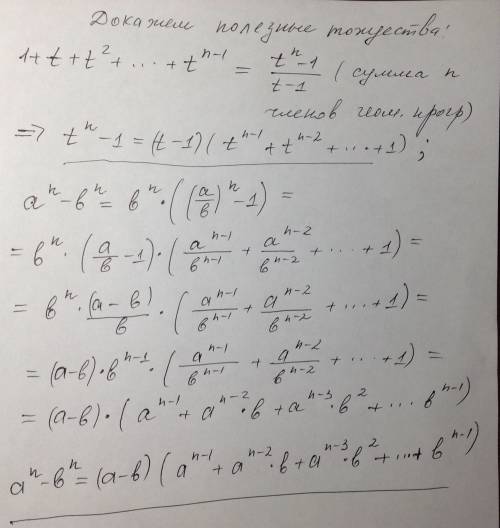 Докажем полезные тождества:
1+t+t²+...+tⁿ⁻¹ = (tⁿ-1)/(t-1) (сумма n
членов геом. прогр)
=> tⁿ-1 = (t-1)(tⁿ⁻¹+tⁿ⁻²+...+1);
aⁿ-вⁿ = вⁿ·((a/в)ⁿ-1) =
= вⁿ·(a/в-1)·(aⁿ⁻¹/вⁿ⁻¹ + aⁿ⁻²/вⁿ⁻² + ... + 1) =
= вⁿ·(a-в)/в·(aⁿ⁻¹/вⁿ⁻¹ + aⁿ⁻²/вⁿ⁻² + ... + 1) =
= (a-в)·вⁿ⁻¹·(aⁿ⁻¹/вⁿ⁻¹ + aⁿ⁻²/вⁿ⁻² + ... + 1) =
= (a-в)·(aⁿ⁻¹+aⁿ⁻²·в+aⁿ⁻³·в²+... вⁿ⁻¹)
aⁿ-вⁿ = (a-в)(aⁿ⁻¹+aⁿ⁻²·в+aⁿ⁻³·в²+...+вⁿ⁻¹)